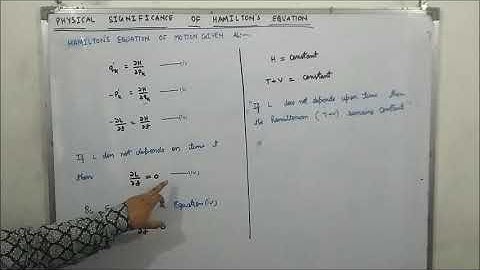 PHYSICAL SIGNIFICANCE OF HAMILTON'S EQUATION
HAMILTON'S EQUATION OF MOTION GIVEN AS:-
q̇ₖ = ∂H/∂pₖ —(i)
-ṗₖ = ∂H/∂qₖ —(ii)
-∂L/∂t = ∂H/∂t —(iii)
If L does not depends on time t
then ∂L/∂t = 0 —(iv)
Equation (iv)
H = constant
T+V = constant
"If L does not depends upon time then
the Hamiltonian (T+V) remains constant"